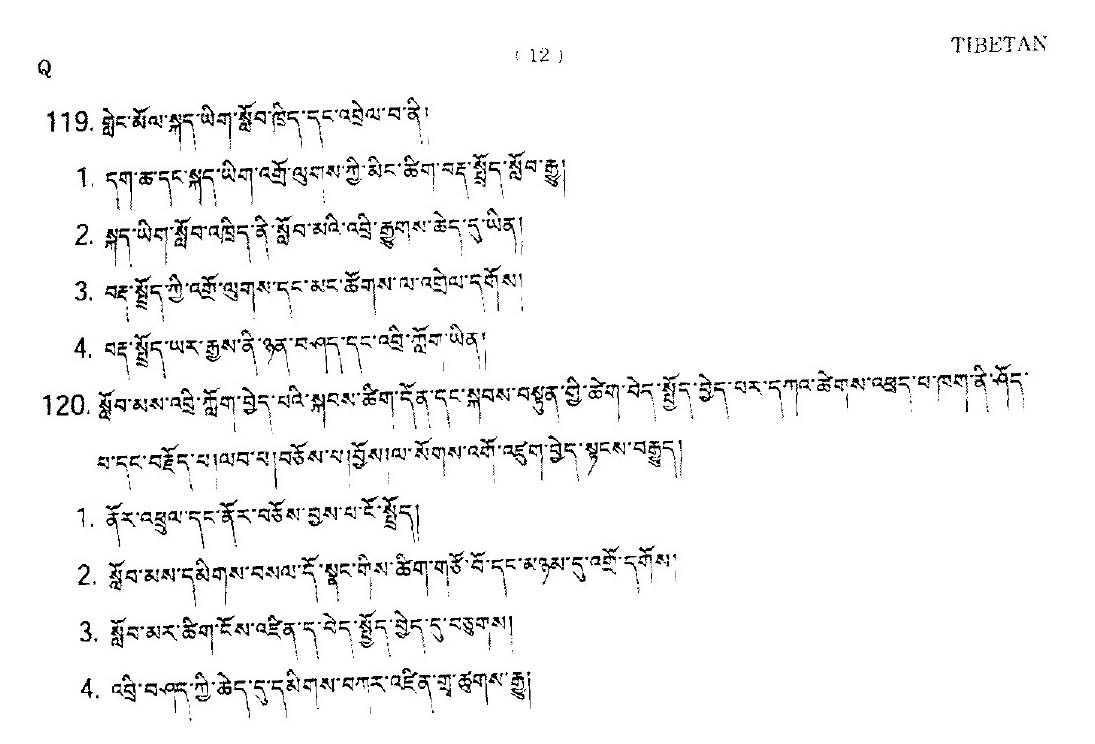 Q
( 12 )
TIBETAN
119. གླེང་མོལ་སྐད་ཡིག་སློབ་ཁྲིད་དང་འབྲེལ་བ་ནི།
1. དག་ཆ་དང་སྐད་ཡིག་འགྲོ་ལུགས་ཀྱི་མིང་ཚིག་བརྡ་སྤྲོད་སློབ་རྒྱུ།
2. སྐད་ཡིག་སློབ་འཁྲིད་ནི་སློབ་མའི་འབྲི་རྒྱུགས་ཆེད་དུ་ཡིན།
3. བརྡ་སྤྲོད་ཀྱི་འགྲོ་ལུགས་དང་མང་ཚོགས་ལ་འབྲེལ་དགོས།
4. བརྡ་སྤྲོད་ཡར་རྒྱས་ནི་ཉན་བཤད་དང་འབྲི་ཀློག་ཡིན།
120. སློབ་མས་འབྲི་ཀློག་བྱེད་པའི་སྐབས་ཚིག་དོན་དང་སྐབས་བསྟུན་གྱི་ཚེག་བེད་སྤྱོད་བྱེད་པར་དཀའ་ཚེགས་འཕྲད་པ་ཁག་ནི་ཤོད་
པ་དང་བརྗོད་པ།ལབ་པ།བཅོས་པ།བྱོས།ལ་སོགས་འགོ་འཛུག་བྱེད་སྟངས་བརྒྱུད།
1. ནོར་འཕྲུལ་དང་ནོར་བཅོས་བྱས་པ་ངོ་སྤྲོད།
2. སློབ་མས་དམིགས་བསལ་དོ་སྣང་གིས་ཚིག་གཙོ་བོ་དང་མཉམ་དུ་འགྲོ་དགོས།
3. སློབ་མར་ཚིག་ངོས་འཛིན་ད་བེད་སྤྱོད་བྱེད་དུ་བཅུགས།
4. འབྲི་བཤད་ཀྱི་ཆེད་དུ་དམིགས་བཀར་འཛིན་གྲྭ་ཚུགས་རྒྱུ།